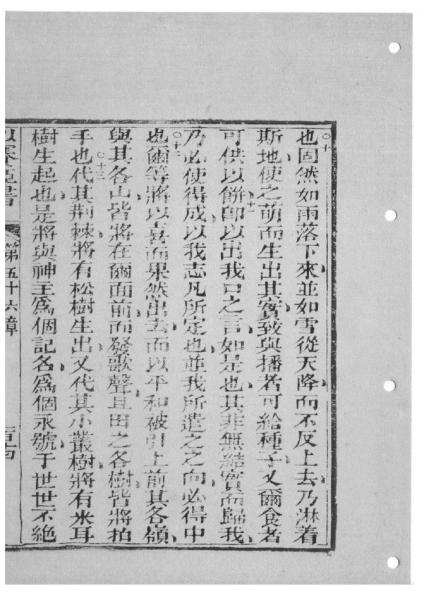 也固然如雨落下來並如雪從天降而不反上去乃淋着
十
斯地使之萌而生出其實致與播者可給種子又爾食者
可供以餅即以出我口之言如是也其非無結實而歸我
十一
乃必使得成以我志凡所定也並我所遣之之向必得中
也爾等將以喜而果然出去而以平和被引上前其各嶺
十二
與其各山皆將在爾面前而發歌聲且田之各樹皆將拍
手也代其荊棘將有松樹生出又代其小叢樹將有米耳
十三
樹生起也是將與神主為個記名為個永號于世世不絕
第五十六章